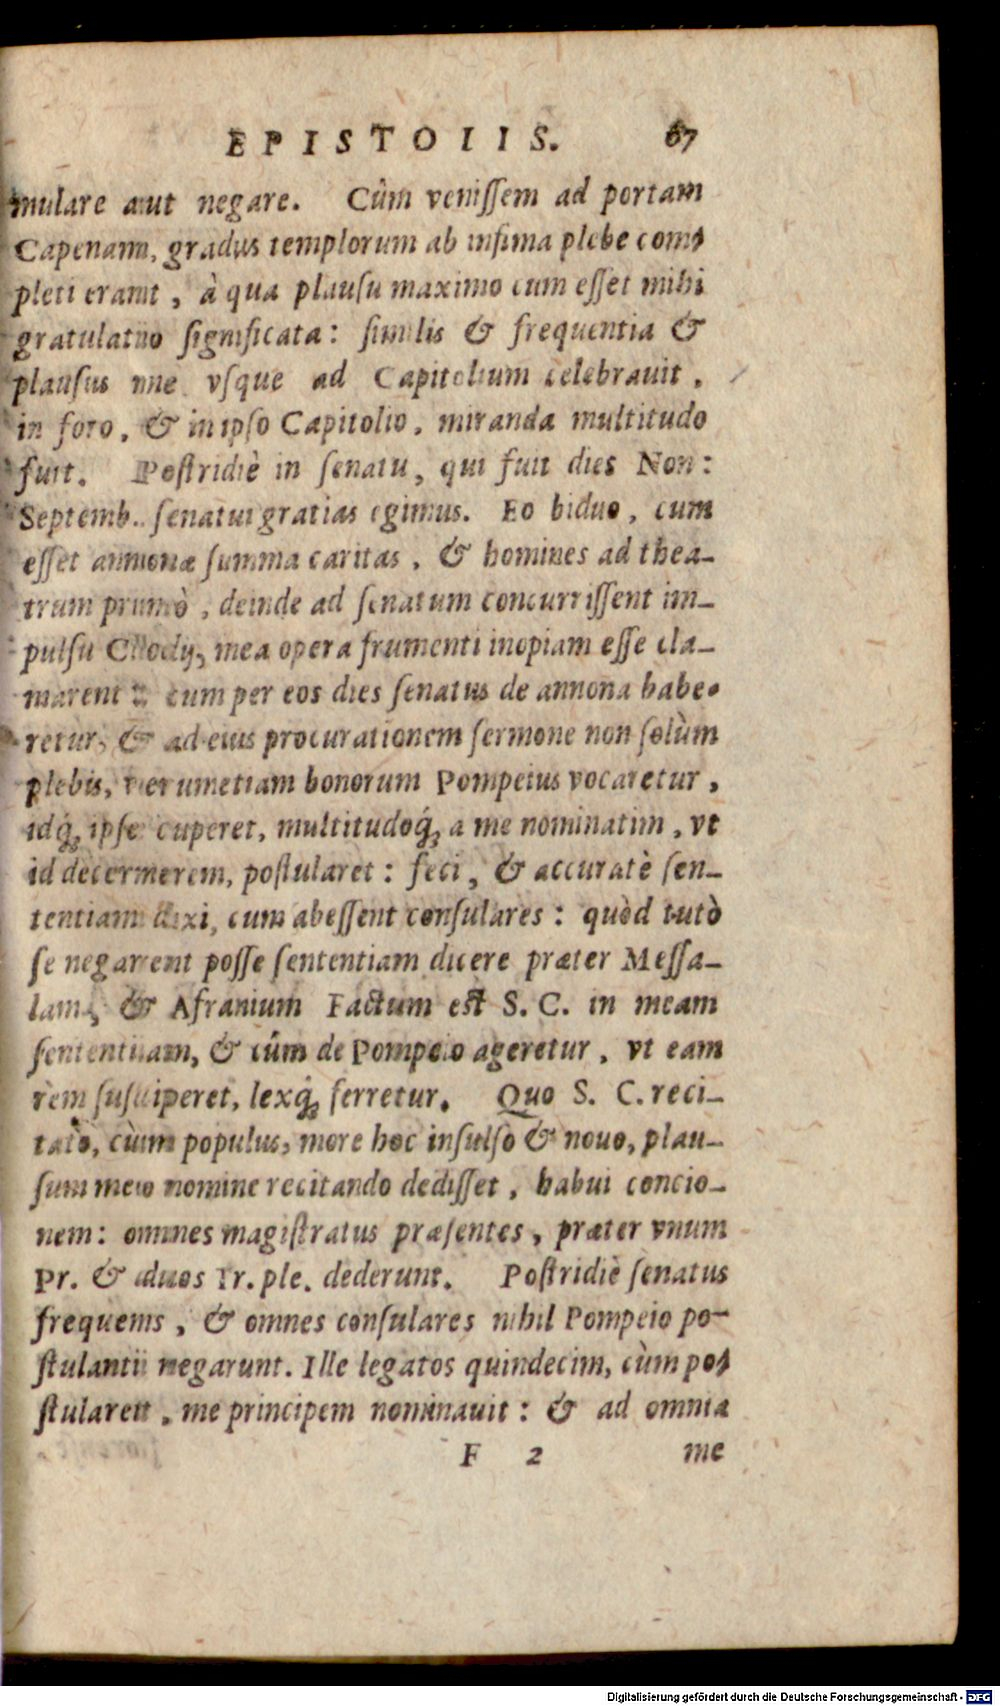 EPISTOLIS. 67
mulare aut negare. Cùm venissem ad portam
Capenam, gradus templorum ab infima plebe com-
pleti erant, à qua plausu maximo cum esset mihi
gratulatio significata: similis & frequentia &
plausus me vsque ad Capitolium celebrauit,
in foro, & in ipso Capitolio, miranda multitudo
fuit. Postridiè in senatu, qui fuit dies Non:
Septemb. senatui gratias egimus. Eo biduo, cum
esset annonæ summa caritas, & homines ad thea-
trum primò, deinde ad senatum concurrissent im-
pulsu Clodij, mea opera frumenti inopiam esse cla-
marent: cum per eos dies senatus de annona habe-
retur, & ad eius procurationem sermone non solùm
plebis, verumetiam bonorum Pompeius vocaretur,
idq́; ipse cuperet, multitudoq́; a me nominatim, vt
id decernerem, postularet: feci, & accuratè sen-
tentiam dixi, cum abessent consulares: quòd tutò
se negarent posse sententiam dicere præter Messa-
lam, & Afranium Factum est S. C. in meam
sententiam, & cùm de Pompeio ageretur, vt eam
rem susciperet, lexq́; ferretur. Quo S. C. reci-
tato, cùm populus, more hoc insulso & nouo, plau-
sum meo nomine recitando dedisset, habui concio-
nem: omnes magistratus præsentes, præter vnum
Pr. & duos Tr. ple. dederunt. Postridiè senatus
frequens, & omnes consulares nihil Pompeio po-
stulanti negarunt. Ille legatos quindecim, cùm po-
stularet, me principem nominauit: & ad omnia
F 2 me
Digitalisierung gefördert durch die Deutsche Forschungsgemeinschaft - DFG